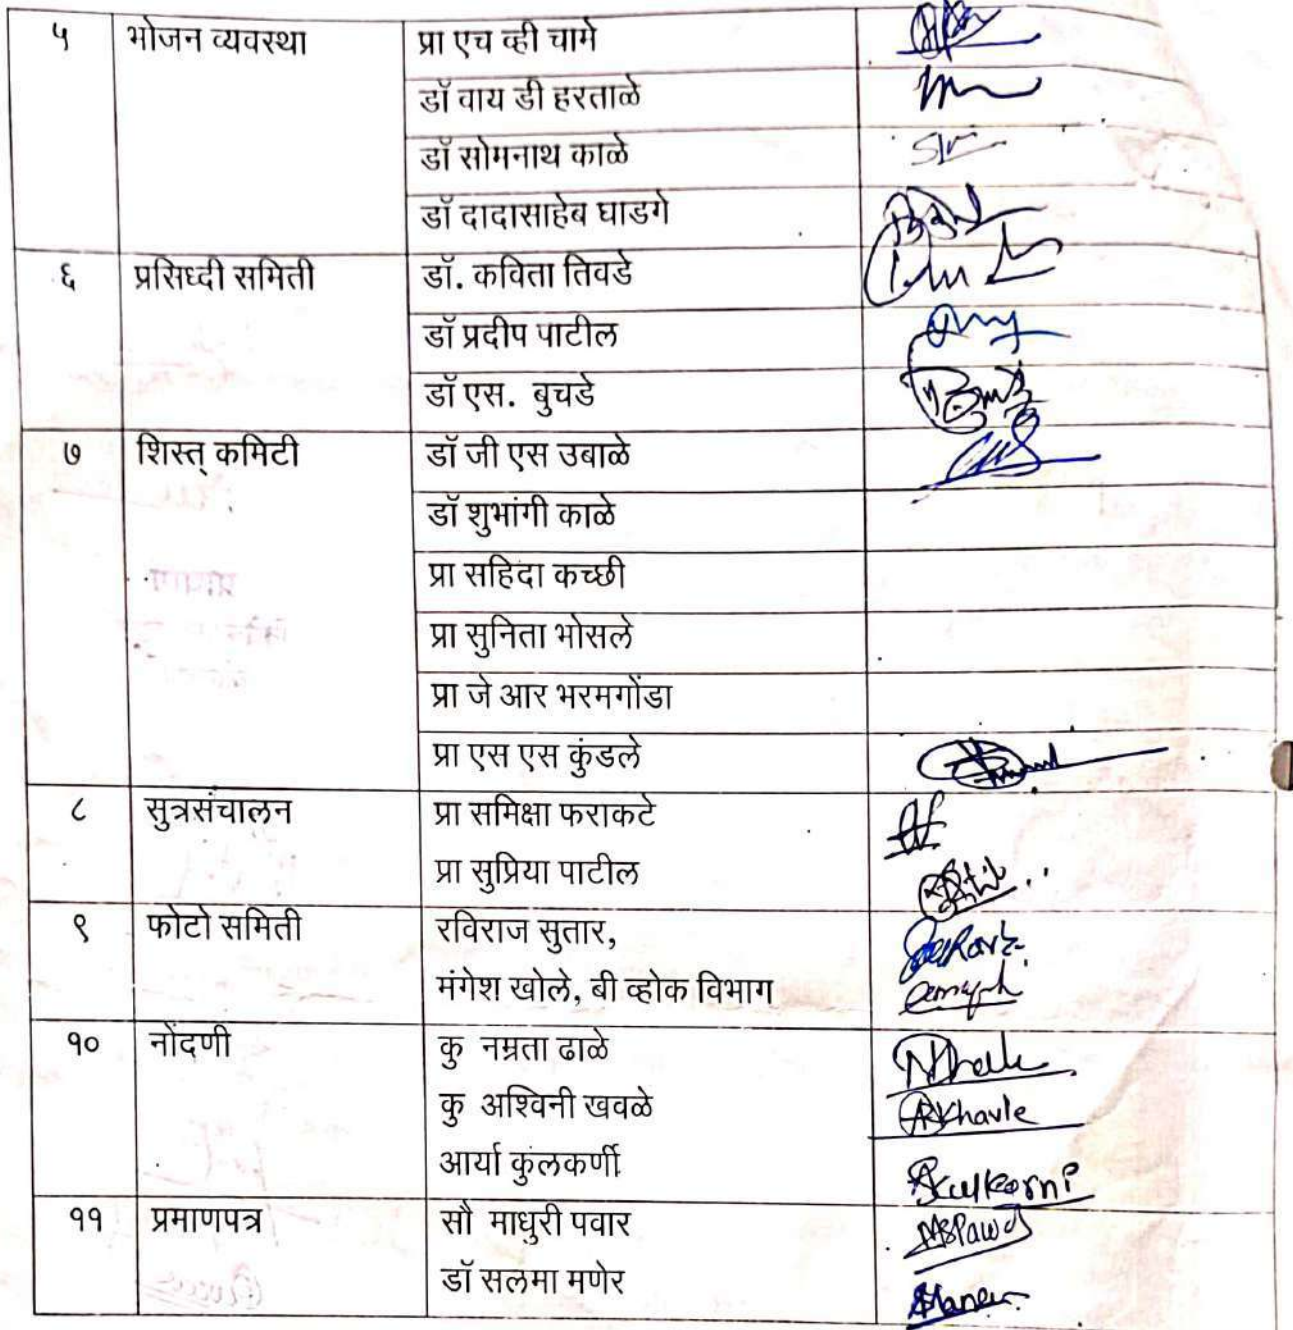 ५ भोजन व्यवस्था प्रा एच व्ही चामे
डॉ वाय डी हरताळे
डॉ सोमनाथ काळे
डॉ दादासाहेब घाडगे
६ प्रसिध्दी समिती डॉ. कविता तिवडे
डॉ प्रदीप पाटील
डॉ एस. बुचडे
७ शिस्त् कमिटी डॉ जी एस उबाळे
डॉ शुभांगी काळे
प्रा सहिदा कच्छी
प्रा सुनिता भोसले
प्रा जे आर भरमगोंडा
प्रा एस एस कुंडले
८ सुत्रसंचालन प्रा समिक्षा फराकटे
प्रा सुप्रिया पाटील
९ फोटो समिती रविराज सुतार,
मंगेश खोले, बी व्होक विभाग
१० नोंदणी कु नम्रता ढाळे
कु अश्विनी खवळे ARKhavle
आर्या कुंलकर्णी Akulkarni
११ प्रमाणपत्र सौ माधुरी पवार
डॉ सलमा मणेर